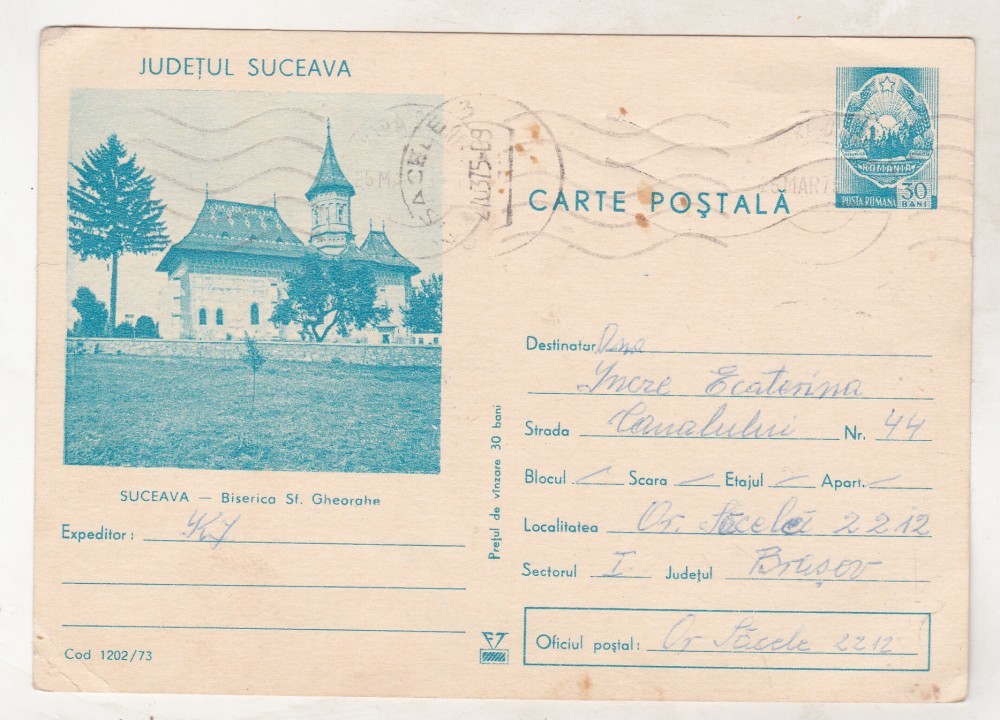 JUDEȚUL SUCEAVA
ROMANIA
POSTA ROMANA 30 BANI
25 MAR 75
SACELE
27.03.75-09
CARTE POȘTALĂ
SUCEAVA — Biserica Sf. Gheorghe
Expeditor:
Cod 1202/73
Prețul de vînzare 30 bani
Destinatar Dna
Incze Ecaterina
Strada Canalului Nr. 44
Blocul Scara Etajul Apart.
Localitatea Or. Săcele 2212
Sectorul I. Județul Brașov
Oficiul poștal: Or Săcele 2212